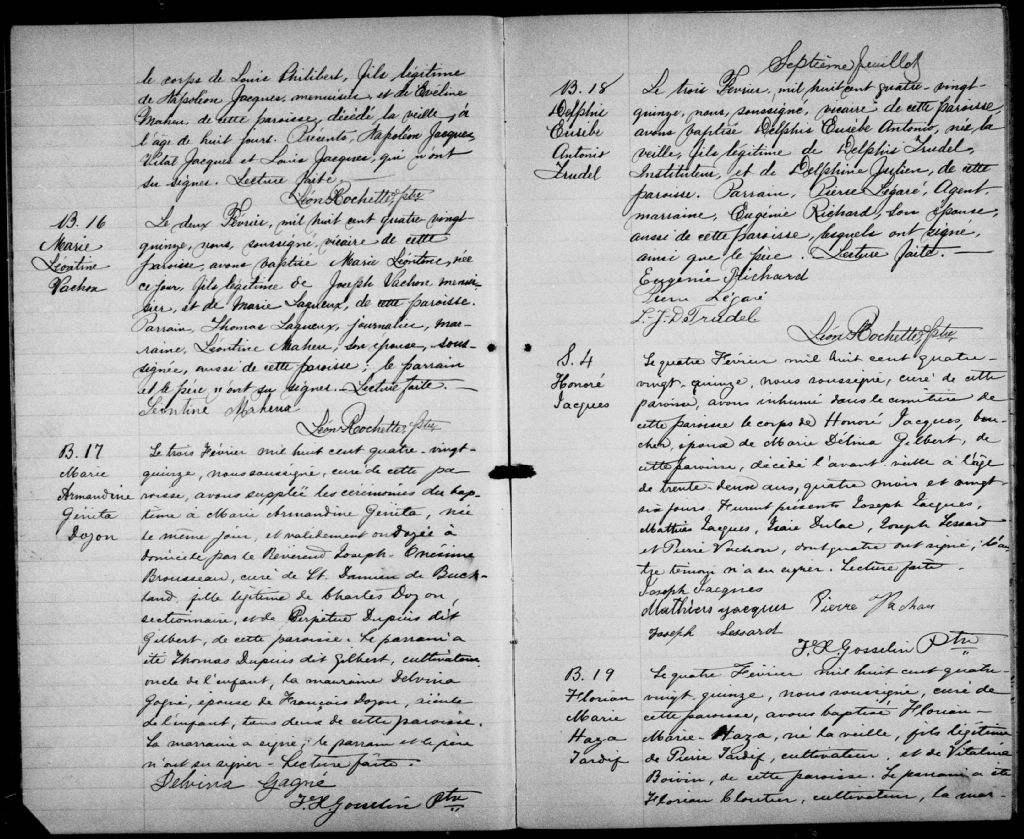 le corps de Louis Philibert, fils légitime
de Napoléon Jacques, menuisier et de Eveline
Maheu, de cette paroisse, décédé la veille, à
l'âge de huit jours. Présents, Napoléon Jacques,
Vital Jacques et Louis Jacques, qui n'ont
su signer. Lecture faite.
Léon Rochette, ptre
B. 16
Marie
Léontine
Vachon
Le deux Février, mil huit cent quatre-vingt-
quinze, nous, soussigné, vicaire de cette
paroisse, avons baptisé Marie Léontine, née
ce jour, fils légitime de Joseph Vachon menui-
sier, et de Marie Lagueux, de cette paroisse.
Parrain, Thomas Lagueux, journalier, mar-
raine, Léontine Maheu, son épouse, sous-
signée, aussi de cette paroisse; le parrain
et le père n'ont su signer. Lecture faite.
Léontine Maheux
Léon Rochette, ptre
B. 17
Marie
Armandine
Génita
Doyon
Le trois Février mil huit cent quatre-vingt-
quinze, nous soussigné, curé de cette pa-
roisse, avons suppléé les cérémonies du bap-
tême à Marie Armandine Génita, née
le même jour, et validement ondoyée à
domicile par le Révérend Joseph-Onésime
Brousseau, curé de St. Damien de Buck-
land, fille légitime de Charles Doyon,
sectionnaire, et de Perpétue Dupuis dit
Gilbert, de cette paroisse. Le parrain a
été Thomas Dupuis dit Gilbert, cultivateur,
oncle de l'enfant, la marraine Delvina
Gagné, épouse de François Doyon,
de l'enfant, tous deux de cette paroisse.
La marraine a signé; le parrain et le père
n'ont su signer - Lecture faite.
Delvina Gagné
F. X. Gosselin Ptre
Septième feuillet
B. 18
Delphis
Eusèbe
Antonio
Trudel
Le trois Février, mil huit cent quatre-vingt-
quinze, nous, soussigné, vicaire de cette paroisse,
avons baptisé Delphis Eusèbe Antonio, né la
veille, fils légitime de Delphis Trudel,
Instituteur, et de Delphine Julien, de cette
paroisse. Parrain, Pierre Légaré, Agent,
marraine, Eugénie Richard, son épouse,
aussi de cette paroisse, lesquels ont signé,
ainsi que le père. Lecture faite.
Eugénie Richard
Pierre Légaré
L. J. D. Trudel
Léon Rochette, ptre
S. 4
Honoré
Jacques
Le quatre Février mil huit cent quatre-
vingt-quinze, nous soussigné, curé de cette
paroisse, avons inhumé dans le cimetière de
cette paroisse le corps de Honoré Jacques, bou-
cher, époux de Marie Délina Gilbert, de
cette paroisse, décédé l'avant veille à l'âge
de trente-deux ans, quatre mois et vingt-
six jours. Furent présents Joseph Jacques,
Mathias Jacques, Isaïe Dulac, Joseph Lessard
et Pierre Vachon, dont quatre ont signé; l'au-
tre témoin n'a su signer. Lecture faite.
Joseph Jacques
Mathiers Jacques Pierre Vachon
Joseph Lessard
F. X. Gosselin Ptre
B. 19
Florian
Marie
Haza
Tardif
Le quatre Février mil huit cent quatre-
vingt-quinze, nous soussigné, curé de
cette paroisse, avons baptisé Florian-
Marie-Haza, né la veille, fils légitime
de Pierre Tardif, cultivateur, et de Vitaline
Boivin, de cette paroisse. Le parrain a été
Florian Cloutier, cultivateur, la mar-